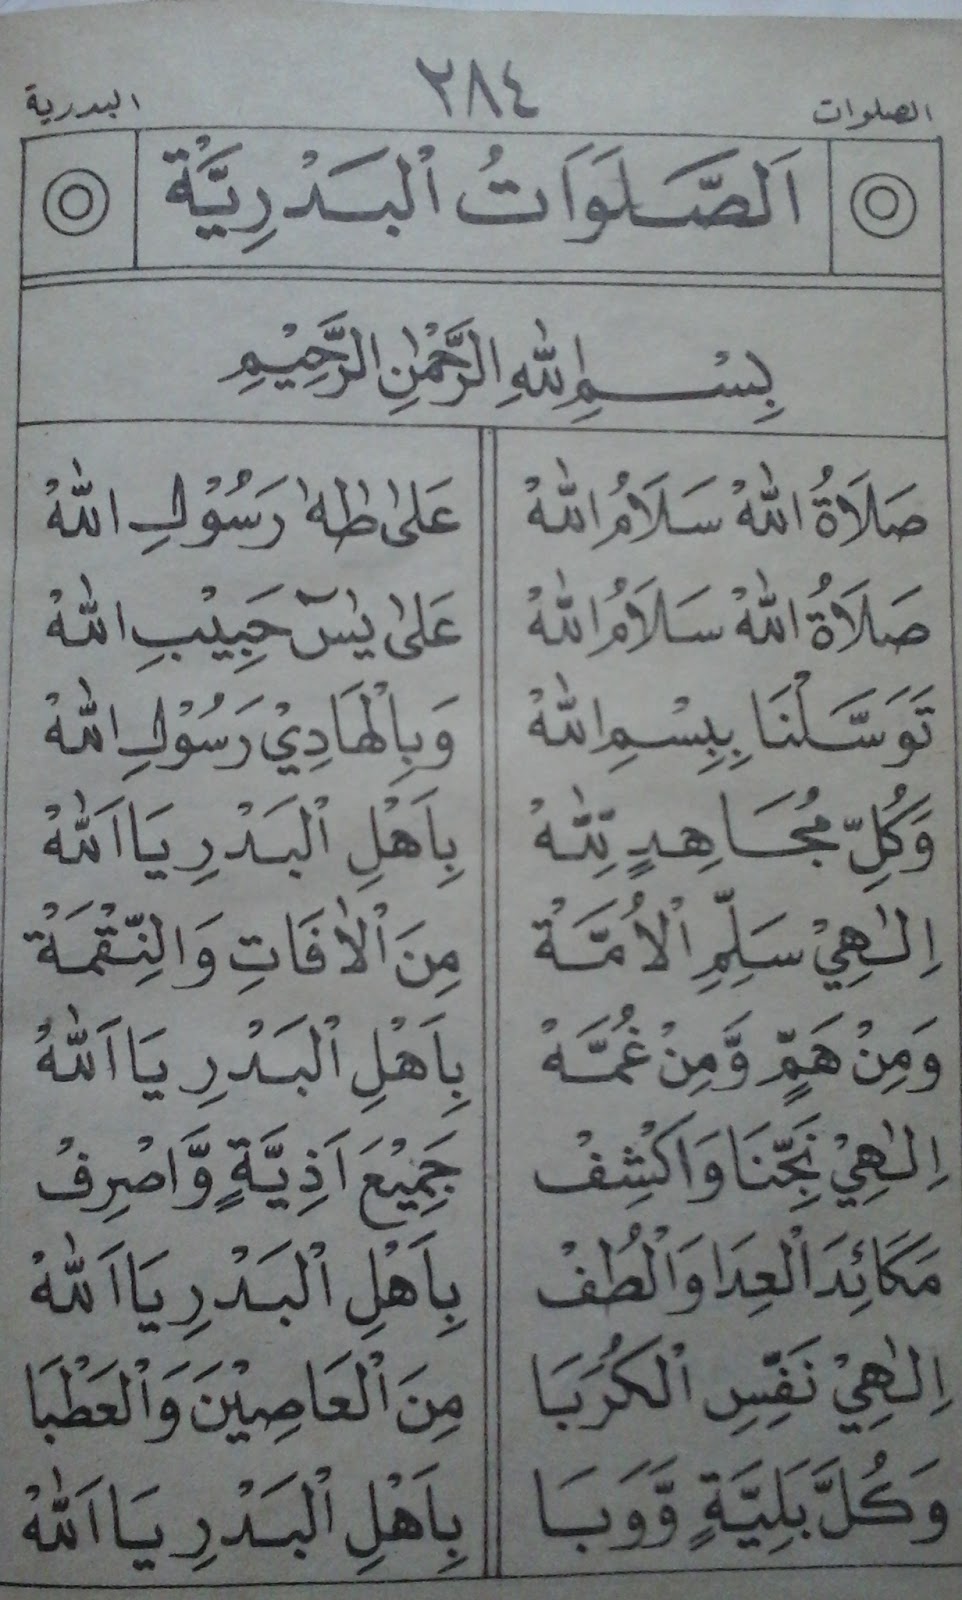 الصلوات ٢٨٤ البدرية
اَلصَّلَوَاتُ الْبَدْرِيَّةْ
بِسْمِ اللهِ الرَّحْمٰنِ الرَّحِيْمِ
صَلَاةُ اللهْ سَلَامُ اللهْ عَلَىٰ طٰهٰ رَسُوْلِ اللهْ
صَلَاةُ اللهْ سَلَامُ اللهْ عَلَىٰ يٰسٓ حَبِيْبِ اللهْ
تَوَسَّلْنَا بِبِسْمِ اللهْ وَبِالْهَادِيْ رَسُوْلِ اللهْ
وَكُلِّ مُجَاهِدٍ لِلّٰهْ بِاَهْلِ الْبَدْرِ يَا اَللهْ
اِلٰهِيْ سَلِّمِ الْاُمَّةْ مِنَ الْاٰفَاتِ وَالنِّقْمَةْ
وَمِنْ هَمٍّ وَّمِنْ غُمَّهْ بِاَهْلِ الْبَدْرِ يَا اَللهْ
اِلٰهِيْ نَجِّنَا وَاكْشِفْ جَمِيْعَ اَذِيَّةٍ وَّاصْرِفْ
مَكَائِدَ الْعِدَا وَالْطُفْ بِاَهْلِ الْبَدْرِ يَا اَللهْ
اِلٰهِيْ نَفِّسِ الْكُرَبَا مِنَ الْعَاصِيْنَ وَالْعَطْبَا
وَكُلَّ بَلِيَّةٍ وَّوَبَا بِاَهْلِ الْبَدْرِ يَا اَللهْ